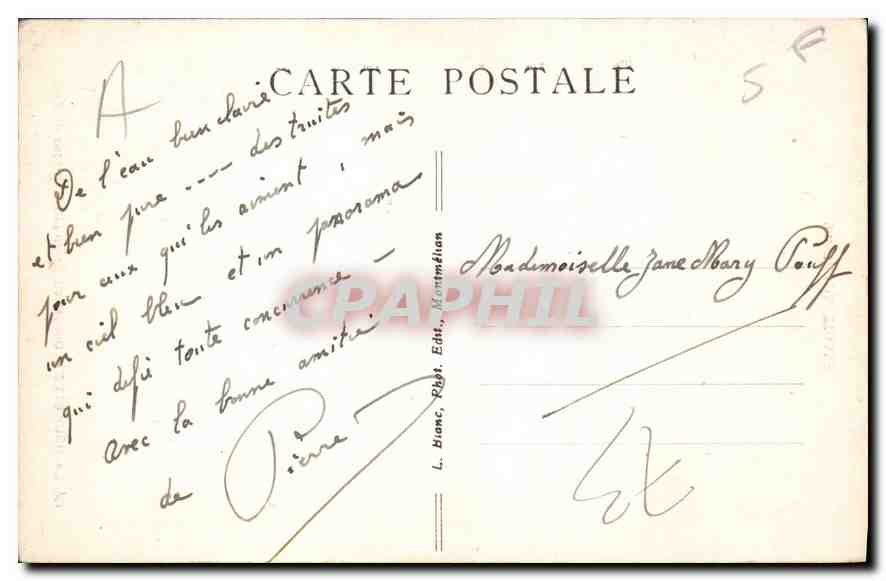 A
CARTE POSTALE
5F
De l'eau bien claire
et bien pure ---- des truites
pour ceux qui les aiment, mais
un ciel bleu et un panorama
qui défie toute concurrence -
avec la bonne amitié
de Pierre
L. Blanc, Phot. Edit., Montmélian
Mademoiselle Jane Mary Pouff
CPAPHIL